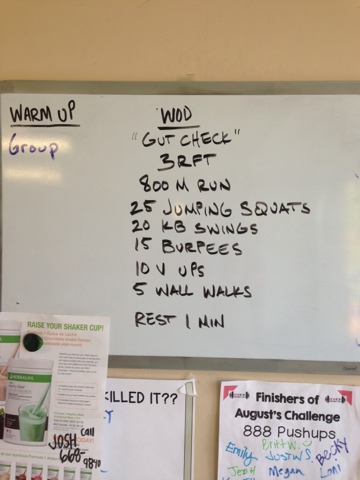 WARM UP
Group
WOD
"GUT CHECK"
3RFT
800 M RUN
25 JUMPING SQUATS
20 KB SWINGS
15 BURPEES
10 V UPS
5 WALL WALKS
REST 1 MIN
RAISE YOUR SHAKER CUP!
HERBALIFE
JOSH call
668-9840
KILLED IT??
Finishers of
August's Challenge
888 Pushups
Britt W.
Emily Justin S Becky
Jesh Megan Loni